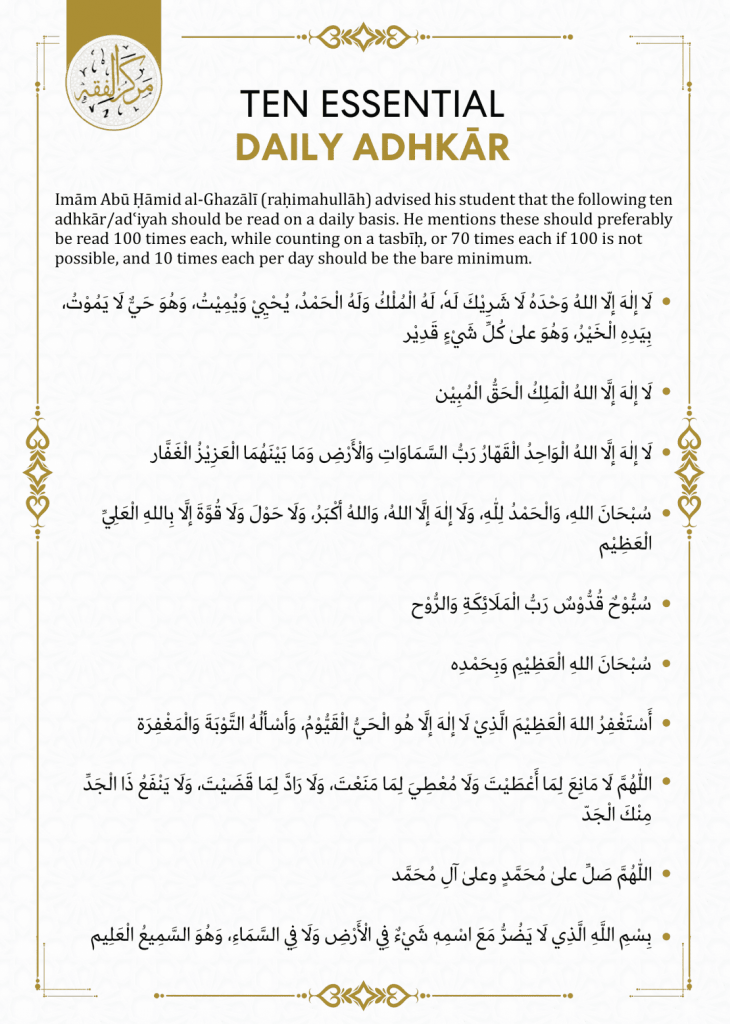 مركز الفقه
TEN ESSENTIAL
DAILY ADHKĀR
Imām Abū Ḥāmid al-Ghazālī (raḥimahullāh) advised his student that the following ten
adhkār/adʿiyah should be read on a daily basis. He mentions these should preferably
be read 100 times each, while counting on a tasbīḥ, or 70 times each if 100 is not
possible, and 10 times each per day should be the bare minimum.
• لَا إِلٰهَ إِلّا اللهُ وَحْدَهُ لَا شَرِيْكَ لَهٗ، لَهُ الْمُلْكُ وَلَهُ الْحَمْدُ، يُحْيِيْ وَيُمِيْتُ، وَهُوَ حَيٌّ لَا يَمُوْتُ،
بِيَدِهِ الْخَيْرُ، وَهُوَ عَلىٰ كُلِّ شَيْءٍ قَدِيْر
• لَا إِلٰهَ إِلَّا اللهُ الْمَلِكُ الْحَقُّ الْمُبِيْن
• لَا إِلٰهَ إِلَّا اللهُ الْوَاحِدُ الْقَهّارُ رَبُّ السَّمَاوَاتِ وَالْأَرْضِ وَمَا بَيْنَهُمَا الْعَزِيْزُ الْغَفَّار
• سُبْحَانَ اللهِ، وَالْحَمْدُ لِلّٰهِ، وَلَا إِلٰهَ إِلَّا اللهُ، وَاللهُ أكْبَرُ، وَلَا حَوْلَ وَلَا قُوَّةَ إِلَّا بِاللهِ الْعَلِيِّ
الْعَظِيْم
• سُبُّوْحٌ قُدُّوْسٌ رَبُّ الْمَلَائِكَةِ وَالرُّوْح
• سُبْحَانَ اللهِ الْعَظِيْمِ وَبِحَمْدِه
• أَسْتَغْفِرُ اللهَ الْعَظِيْمَ الَّذِيْ لَا إِلٰهَ إِلَّا هُو الْحَيُّ الْقَيُّوْمُ، وَأسْألُهُ التَّوْبَةَ وَالْمَغْفِرَة
• اللّٰهُمَّ لَا مَانِعَ لِمَا أَعْطَيْتَ وَلَا مُعْطِيَ لِمَا مَنَعْتَ، وَلَا رَادَّ لِمَا قَضَيْتَ، وَلَا يَنْفَعُ ذَا الْجَدِّ
مِنْكَ الْجَدّ
• اللّٰهُمَّ صَلِّ عَلىٰ مُحَمَّدٍ وعَلىٰ آلِ مُحَمَّد
• بِسْمِ اللَّهِ الَّذِي لَا يَضُرُّ مَعَ اسْمِهٖ شَيْءٌ فِي الْأَرْضِ وَلَا فِي السَّمَاءِ، وَهُوَ السَّمِيعُ الْعَلِيم